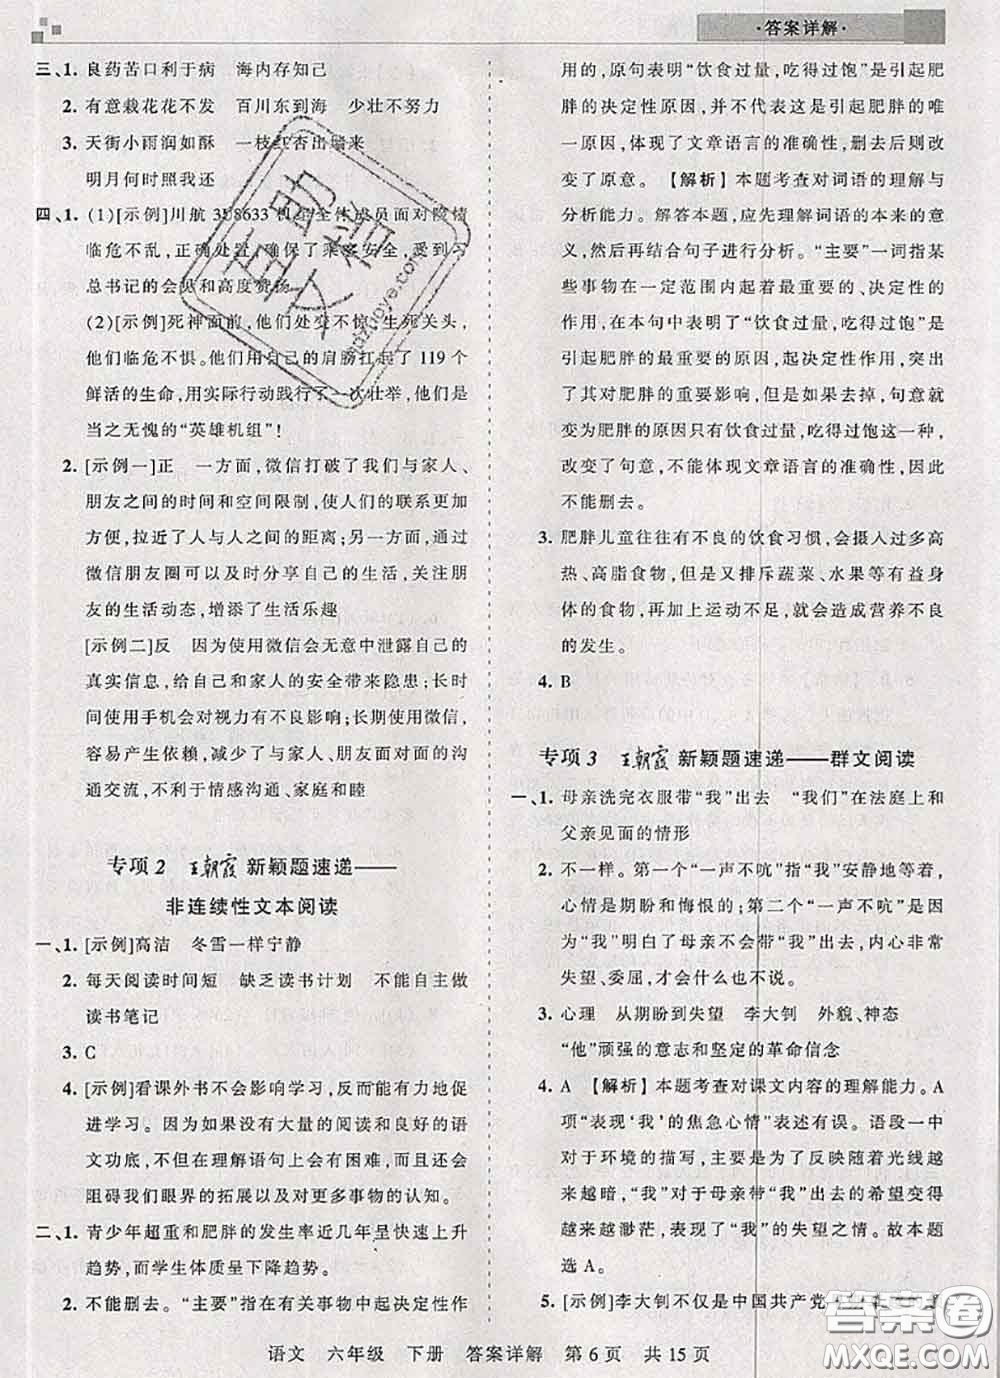 ·答案详解·
三、1. 良药苦口利于病 海内存知己
2. 有意栽花花不发 百川东到海 少壮不努力
3. 天街小雨润如酥 一枝红杏出墙来
明月何时照我还
四、1. (1)[示例]川航 3U8633 机组全体成员面对险情
临危不乱,正确处置,确保了乘客安全,受到习
总书记的会见和高度赞扬
(2)[示例]死神面前,他们处变不惊;生死关头,
他们临危不惧。他们用自己的肩膀扛起了 119 个
鲜活的生命,用实际行动践行了一次壮举,他们是
当之无愧的“英雄机组”!
2. [示例一]正 一方面,微信打破了我们与家人、
朋友之间的时间和空间限制,使人们的联系更加
方便,拉近了人与人之间的距离;另一方面,通过
微信朋友圈可以及时分享自己的生活,关注朋
友的生活动态,增添了生活乐趣
[示例二]反 因为使用微信会无意中泄露自己的
真实信息,给自己和家人的安全带来隐患;长时
间使用手机会对视力有不良影响;长期使用微信,
容易产生依赖,减少了与家人、朋友面对面的沟
通交流,不利于情感沟通、家庭和睦
专项2 王朝霞 新颖题速递——
非连续性文本阅读
一、1. [示例]高洁 冬雪一样宁静
2. 每天阅读时间短 缺乏读书计划 不能自主做
读书笔记
3. C
4. [示例]看课外书不会影响学习,反而有利于促
进学习。因为如果没有大量的阅读和良好的语
文功底,不但在理解语句上会有困难,而且还会
阻碍我们眼界的拓展以及对更多事物的认知。
二、1. 青少年超重和肥胖的发生率近几年呈快速上升
趋势,而学生体质呈下降趋势。
2. 不能删去。“主要”指在有关事物中起决定性作
用的,原句表明“饮食过量,吃得过饱”是引起肥
胖的决定性原因,并不代表这是引发肥胖的唯
一原因,体现了文章语言的准确性,删去后则改
变了原意。 【解析】本题考查对词语的理解与
分析能力。解答本题,应先理解词语的本来的意
义,然后再结合句子进行分析。“主要”一词指某
些事物在一定范围内起着最重要的、决定性的
作用,在本句中表明了“饮食过量,吃得过饱”是
引起肥胖的最重要的原因,起决定性作用,突出
了其对肥胖的重要影响,如果去掉,句意就
变为肥胖的原因只有饮食过量,吃得过饱这一种,
改变了句意,不能体现文章语言的准确性,因此
不能删去。
3. 肥胖儿童往往有不良的饮食习惯,会摄入过多高
热、高脂食物,但又排斥蔬菜、水果等有益身
体的食物,再加上运动不足,就会造成营养不良
的发生。
4. B
专项3 王朝霞 新颖题速递——群文阅读
一、1. 母亲洗完衣服带“我”出去 “我们”在法庭上和
父亲见面的情形
2. 不一样。第一个“一声不吭”指“我”安静地等着,
心情是期盼和悔恨的;第二个“一声不吭”是因
为“我”明白了母亲不会带“我”出去,内心非常
失望、委屈,于是什么也不说。
3. 心理 从期盼到失望 李大钊 外貌、神态
“他”顽强的意志和坚定的革命信念
4. A 【解析】本题考查对课文内容的理解能力。A
项“表现‘我’的焦急心情”表述有误。语段一中
对于环境的描写,主要是为了反映随着光线越
来越暗,“我”对于母亲带“我”出去的希望变得
越来越渺茫,表现了“我”的失望之情。故本题
选A。
5. [示例]李大钊不仅是中国共产党
语文 六年级 下册 答案详解 第6页 共15页
答案圈
MXQE.COM